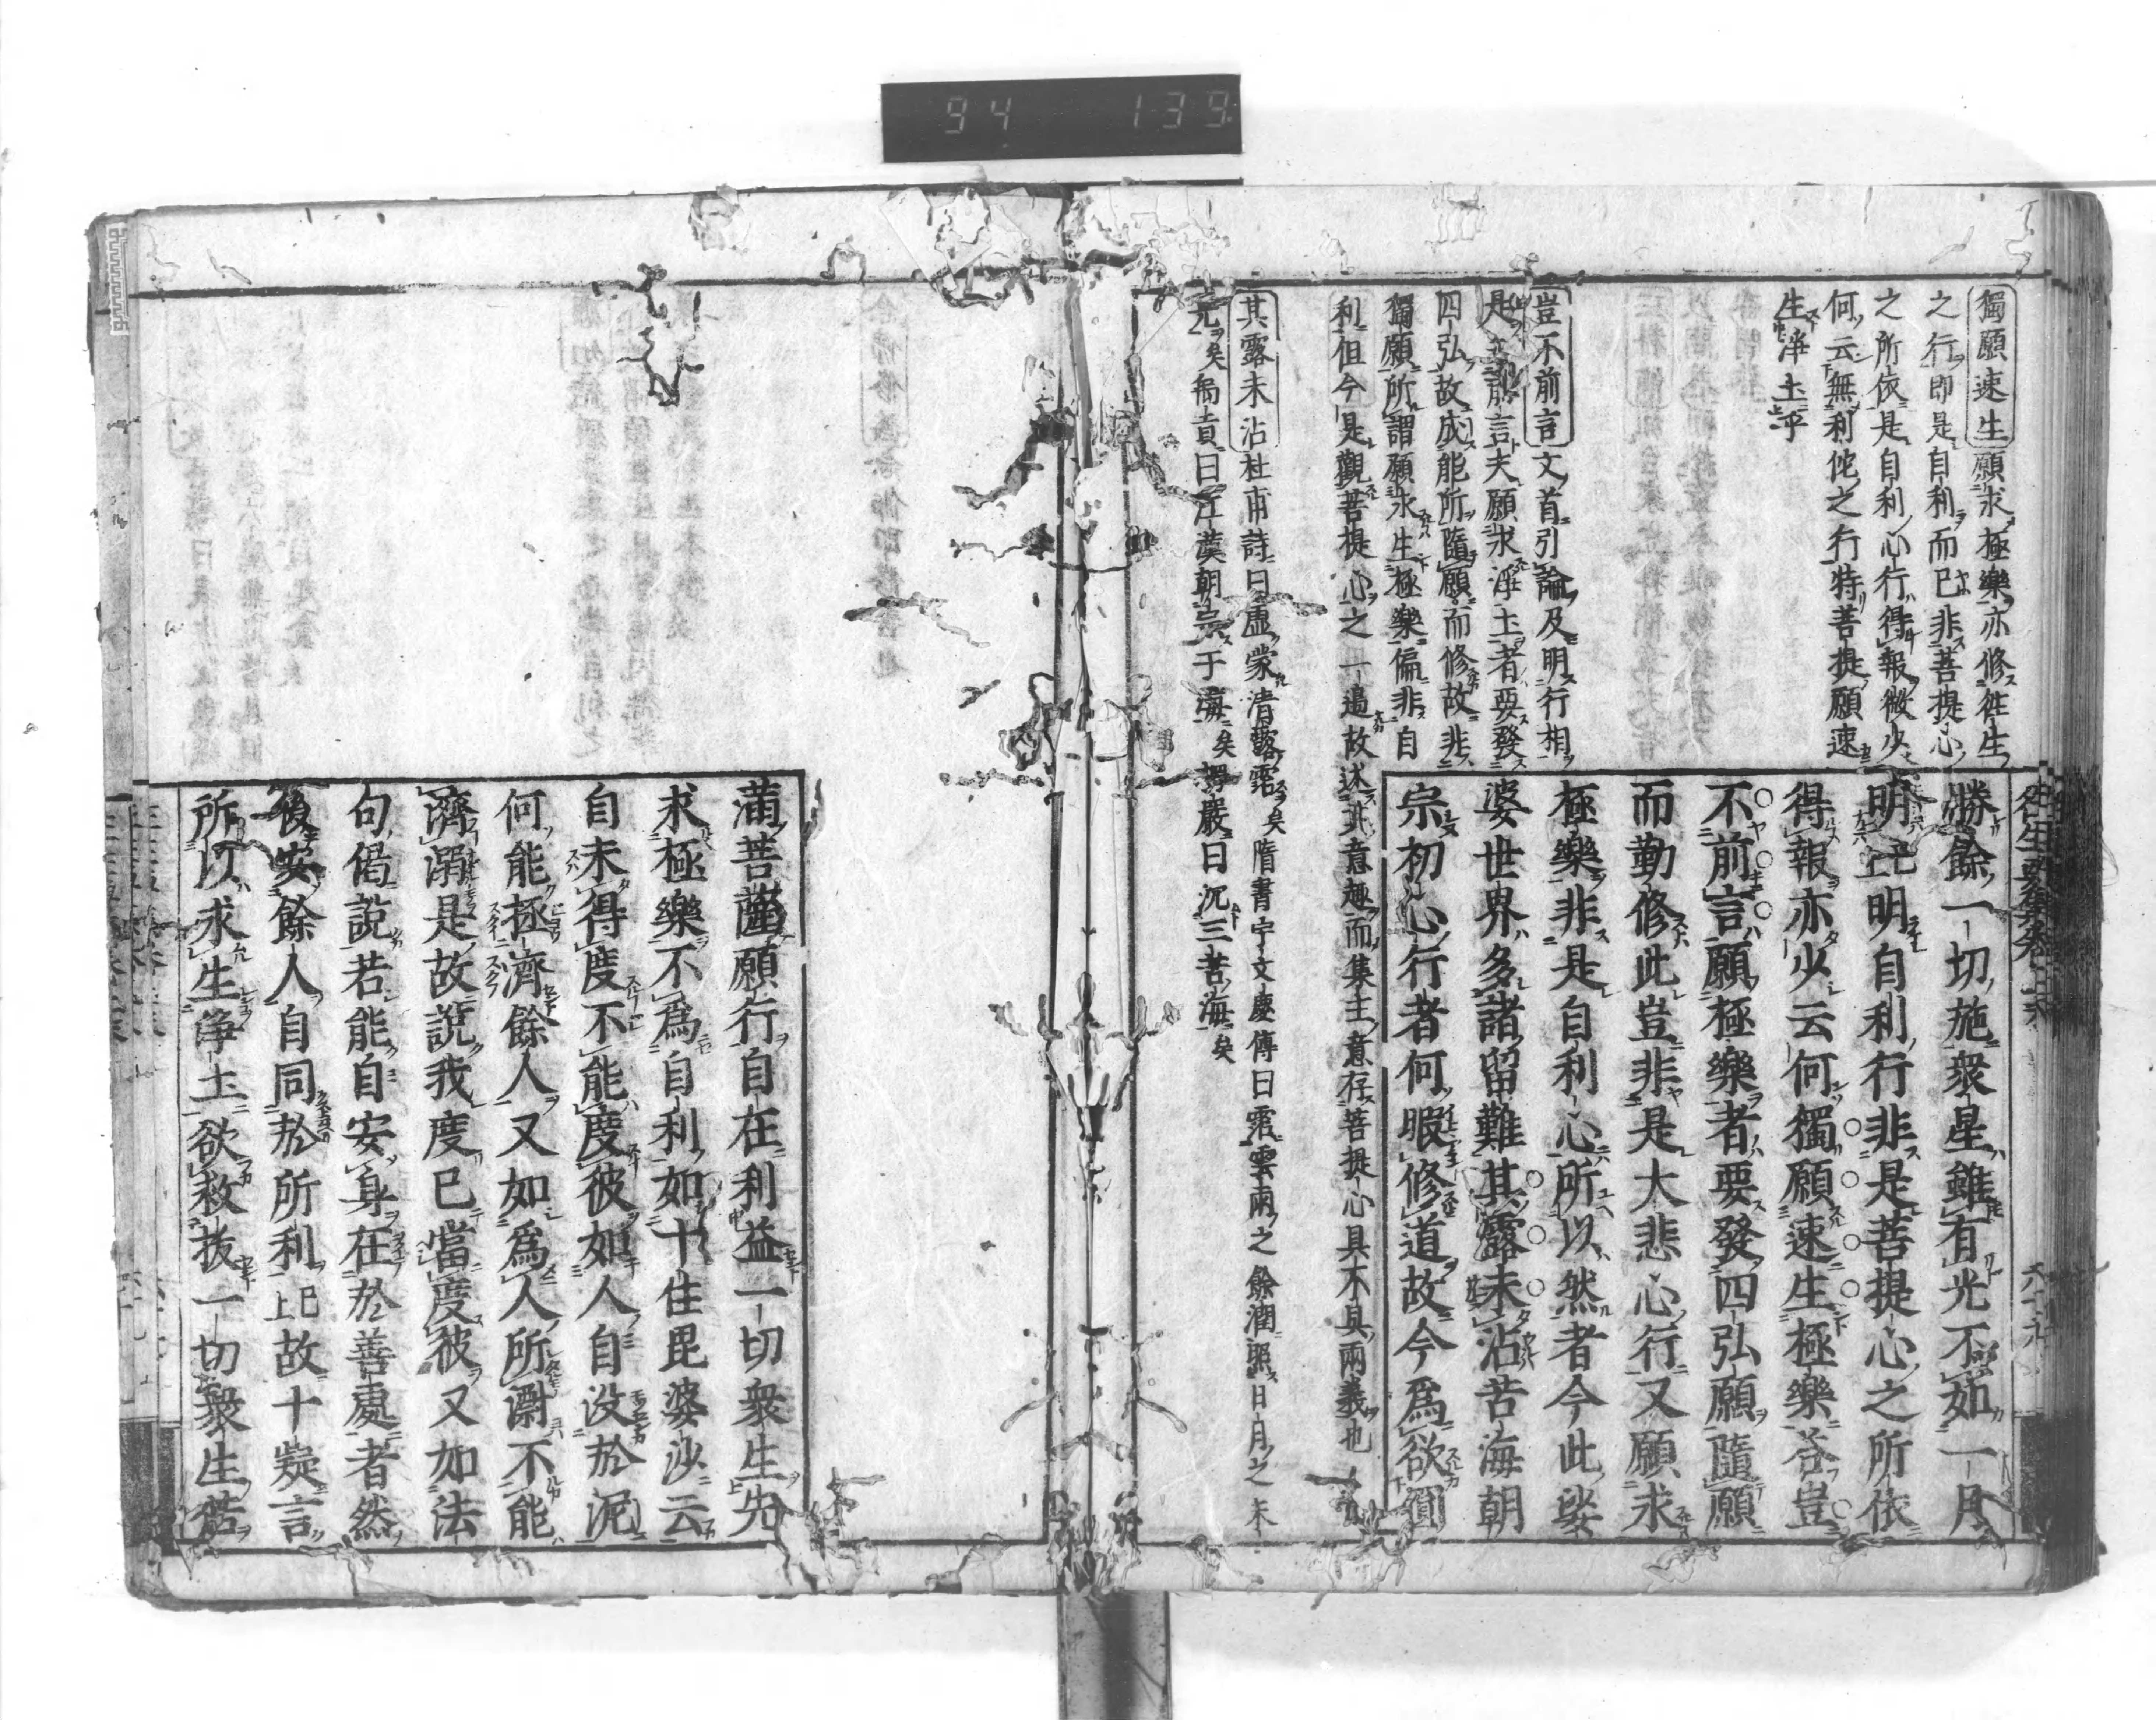 94 139
獨願速生願求極樂亦修往生
之行即是自利而已非菩提心
之所依是自利心行得報微少
何云無利佗之行特菩提願速
生淨土乎
豈不前言文首引論及明行相
是前言夫願求淨土者要發
四弘故成能所隨願而修故非
獨願所謂願求生極樂偏非自
利但今是觀菩提心之一邊故述此意趣而集主意存菩提心具不具兩義也
其露未沾杜甫詩曰虛蒙清露霑矣隋書宇文慶傳曰霑雲雨之餘潤照日月之末
光矣禹貢曰江漢朝宗于海矣楞嚴曰沉三苦海矣
勝餘一切施衆星雖有光不如一月
明已上明自利行非是菩提心之所依
得報亦少云何獨願速生極樂荅豈
不前言願極樂者要發四弘願隨願
而勤修此豈非是大悲心行又願求
極樂非是自利心所以然者今此娑
婆世界多諸留難其露未沾苦海朝
宗初心行者何暇修道故今爲欲圓
往生要集卷上末 六十九
滿菩薩願行自在利益一切衆生先
求極樂不爲自利如十住毘婆沙云
自未得度不能度彼如人自没於泥
何能拯濟餘人又如爲人所漂不能
濟溺是故說我度已當度彼又如法
句偈說若能自安身在於善處者然
後安餘人自同於所利已上故十疑言
所以求生淨土欲救拔一切衆生苦